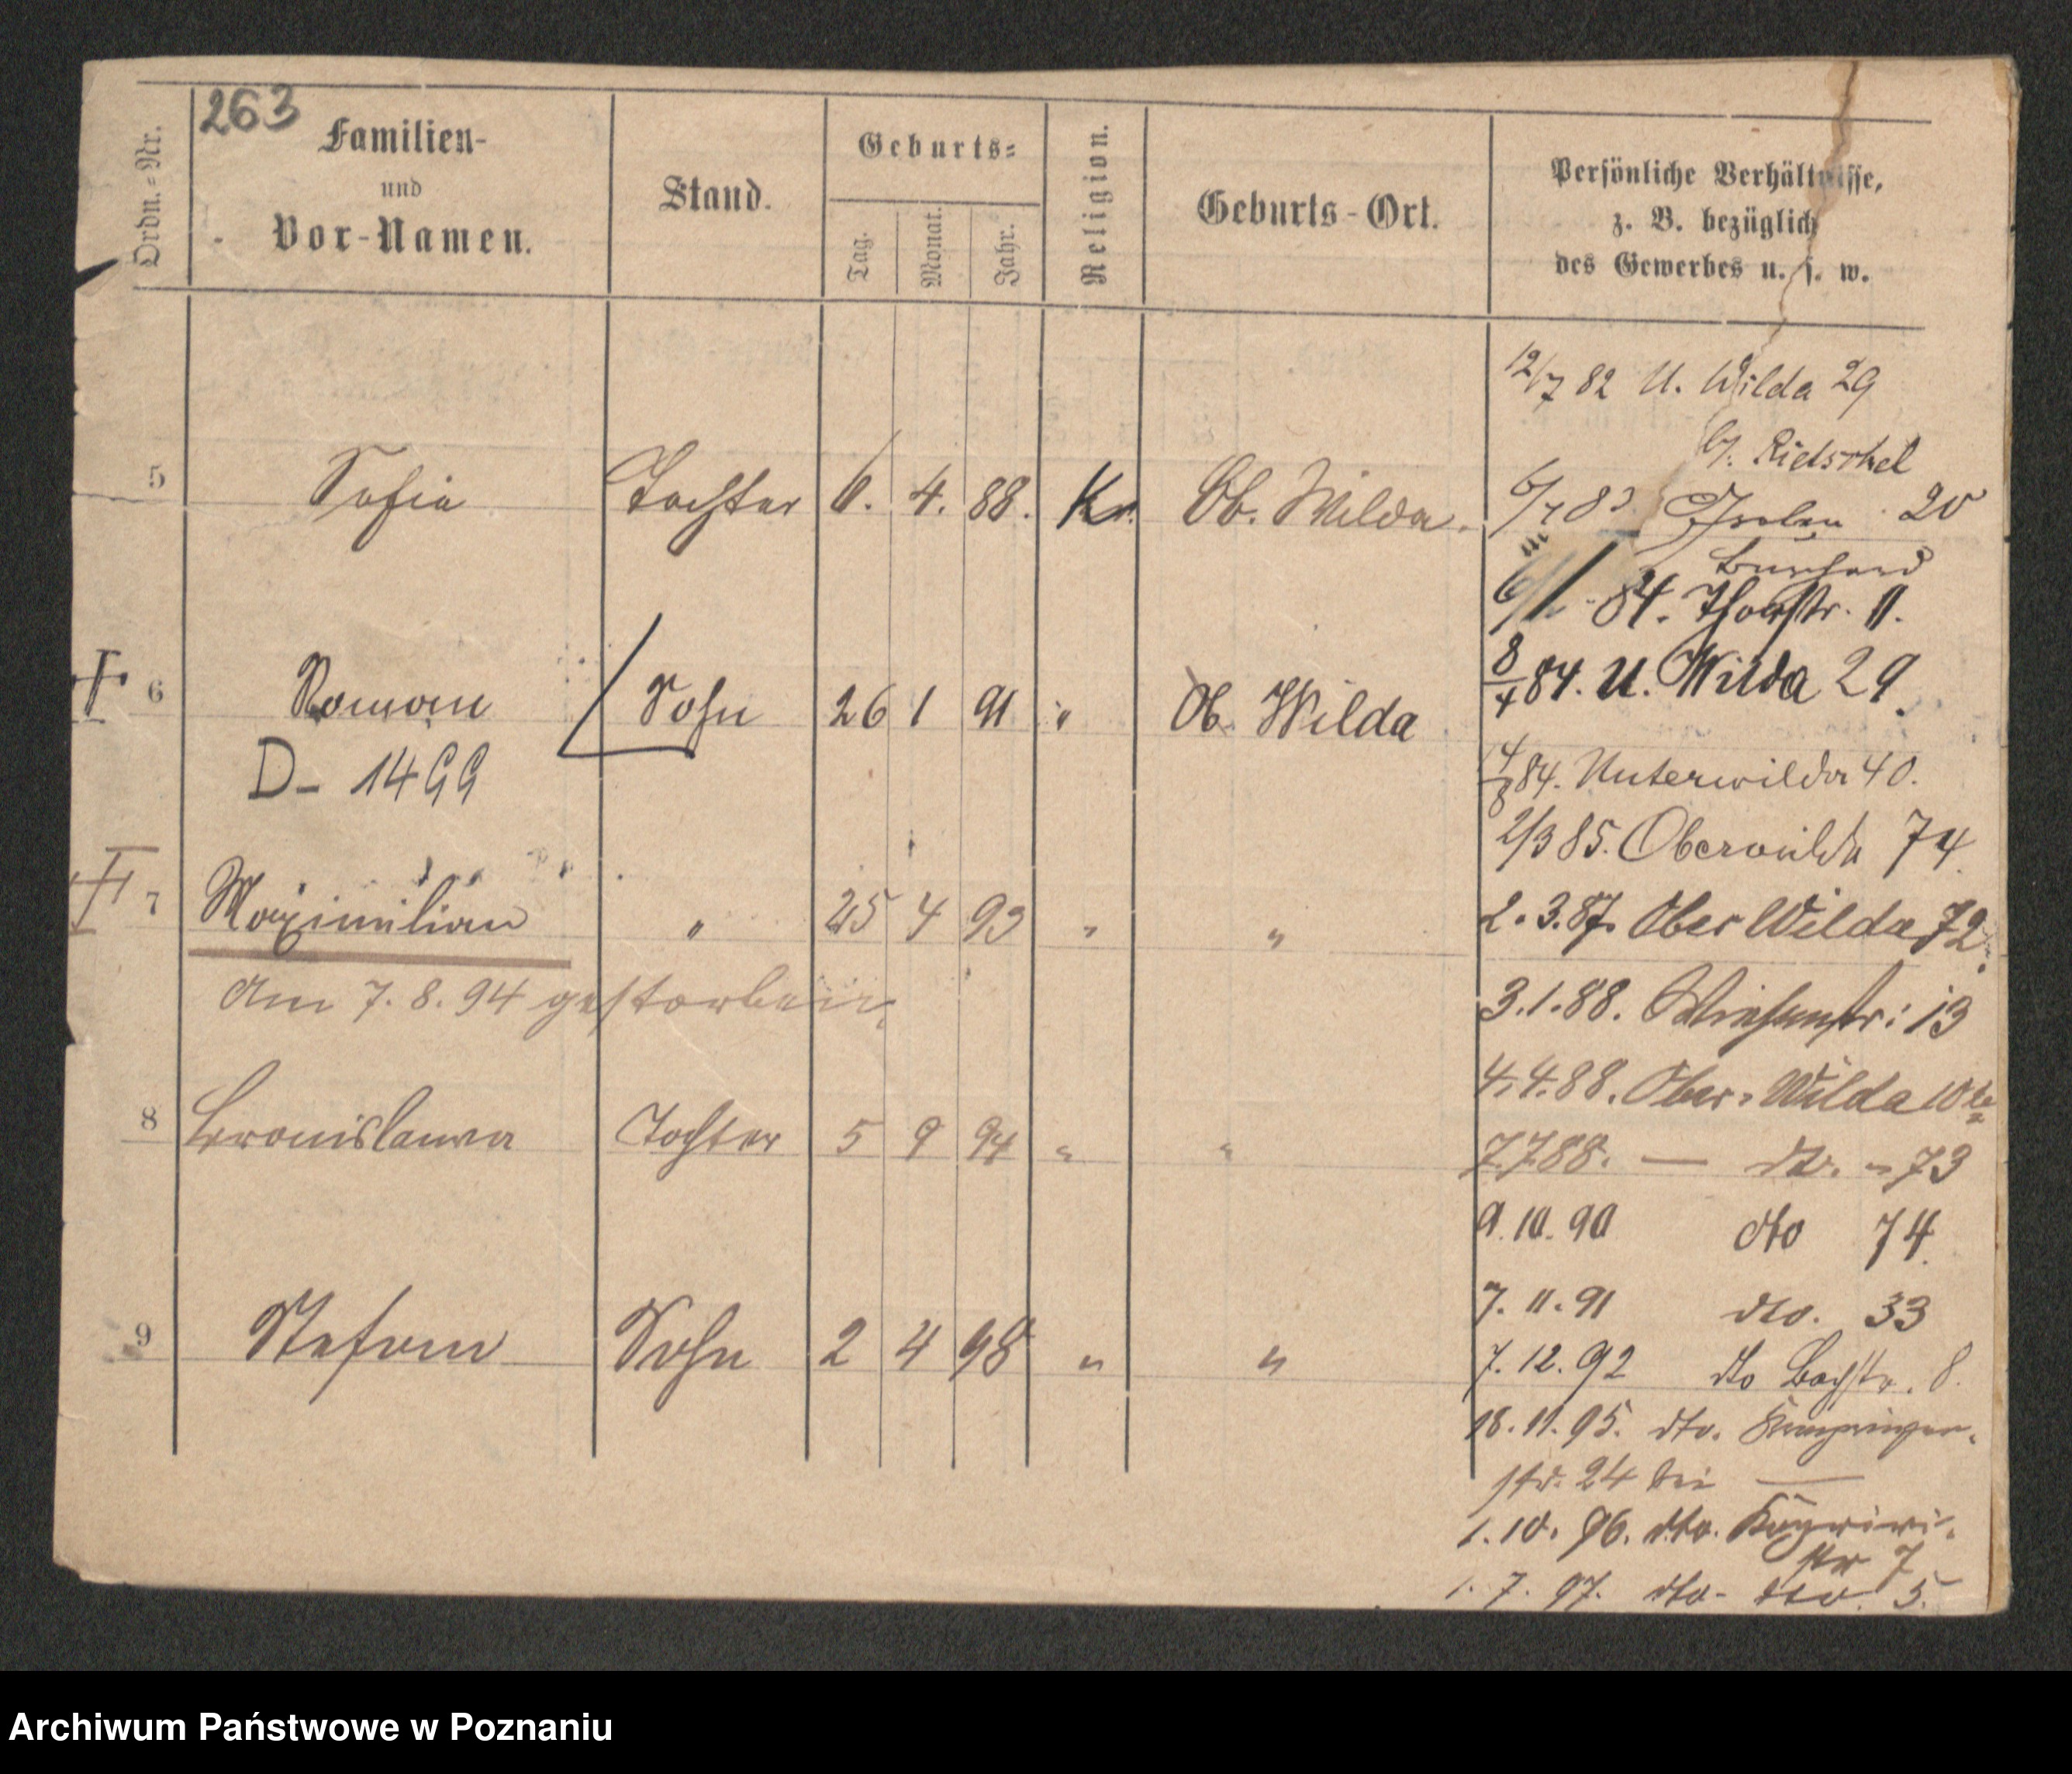 263
Ordn.-Nr.
Familien-
und
Vor-Namen.
Stand.
Geburts-
Tag.
Monat.
Jahr.
Religion.
Geburts-Ort.
Persönliche Verhältnisse,
z. B. bezüglich
des Gewerbes u. s. w.
12/7 82 U. Wilda 29
b/. Rietschel
5 Sofia Tochter 6. 4. 88. K. Ob. Wilda.
6/7 83 20
84. Thorstr. 11.
8/4 84. U. Wilda 29.
6 Roman Sohn 26 1 91 " Ob. Wilda
D- 1499
4/8 84. Unterwilda 40.
2/3 85. Oberwilda 74.
7 Maximilian " 25 4 93 " "
2. 3. 87. Ober Wilda 72.
Am 7. 8. 94 gestorben
3. 1. 88. 13
4. 4. 88. Ober-Wilda
8 Bronislawa Tochter 5 9 94 " "
7.7.88. — dto. " 73
9. 10. 90 dto 74.
7. 11. 91 dto. 33
9 Stefan Sohn 2 4 98 " "
7. 12. 92 dto Bachstr. 8.
18. 11. 95. dto.
str. 24 bei —
1. 10. 96. dto.
str 7
1. 7. 97. dto. dto. 5.
Archiwum Państwowe w Poznaniu